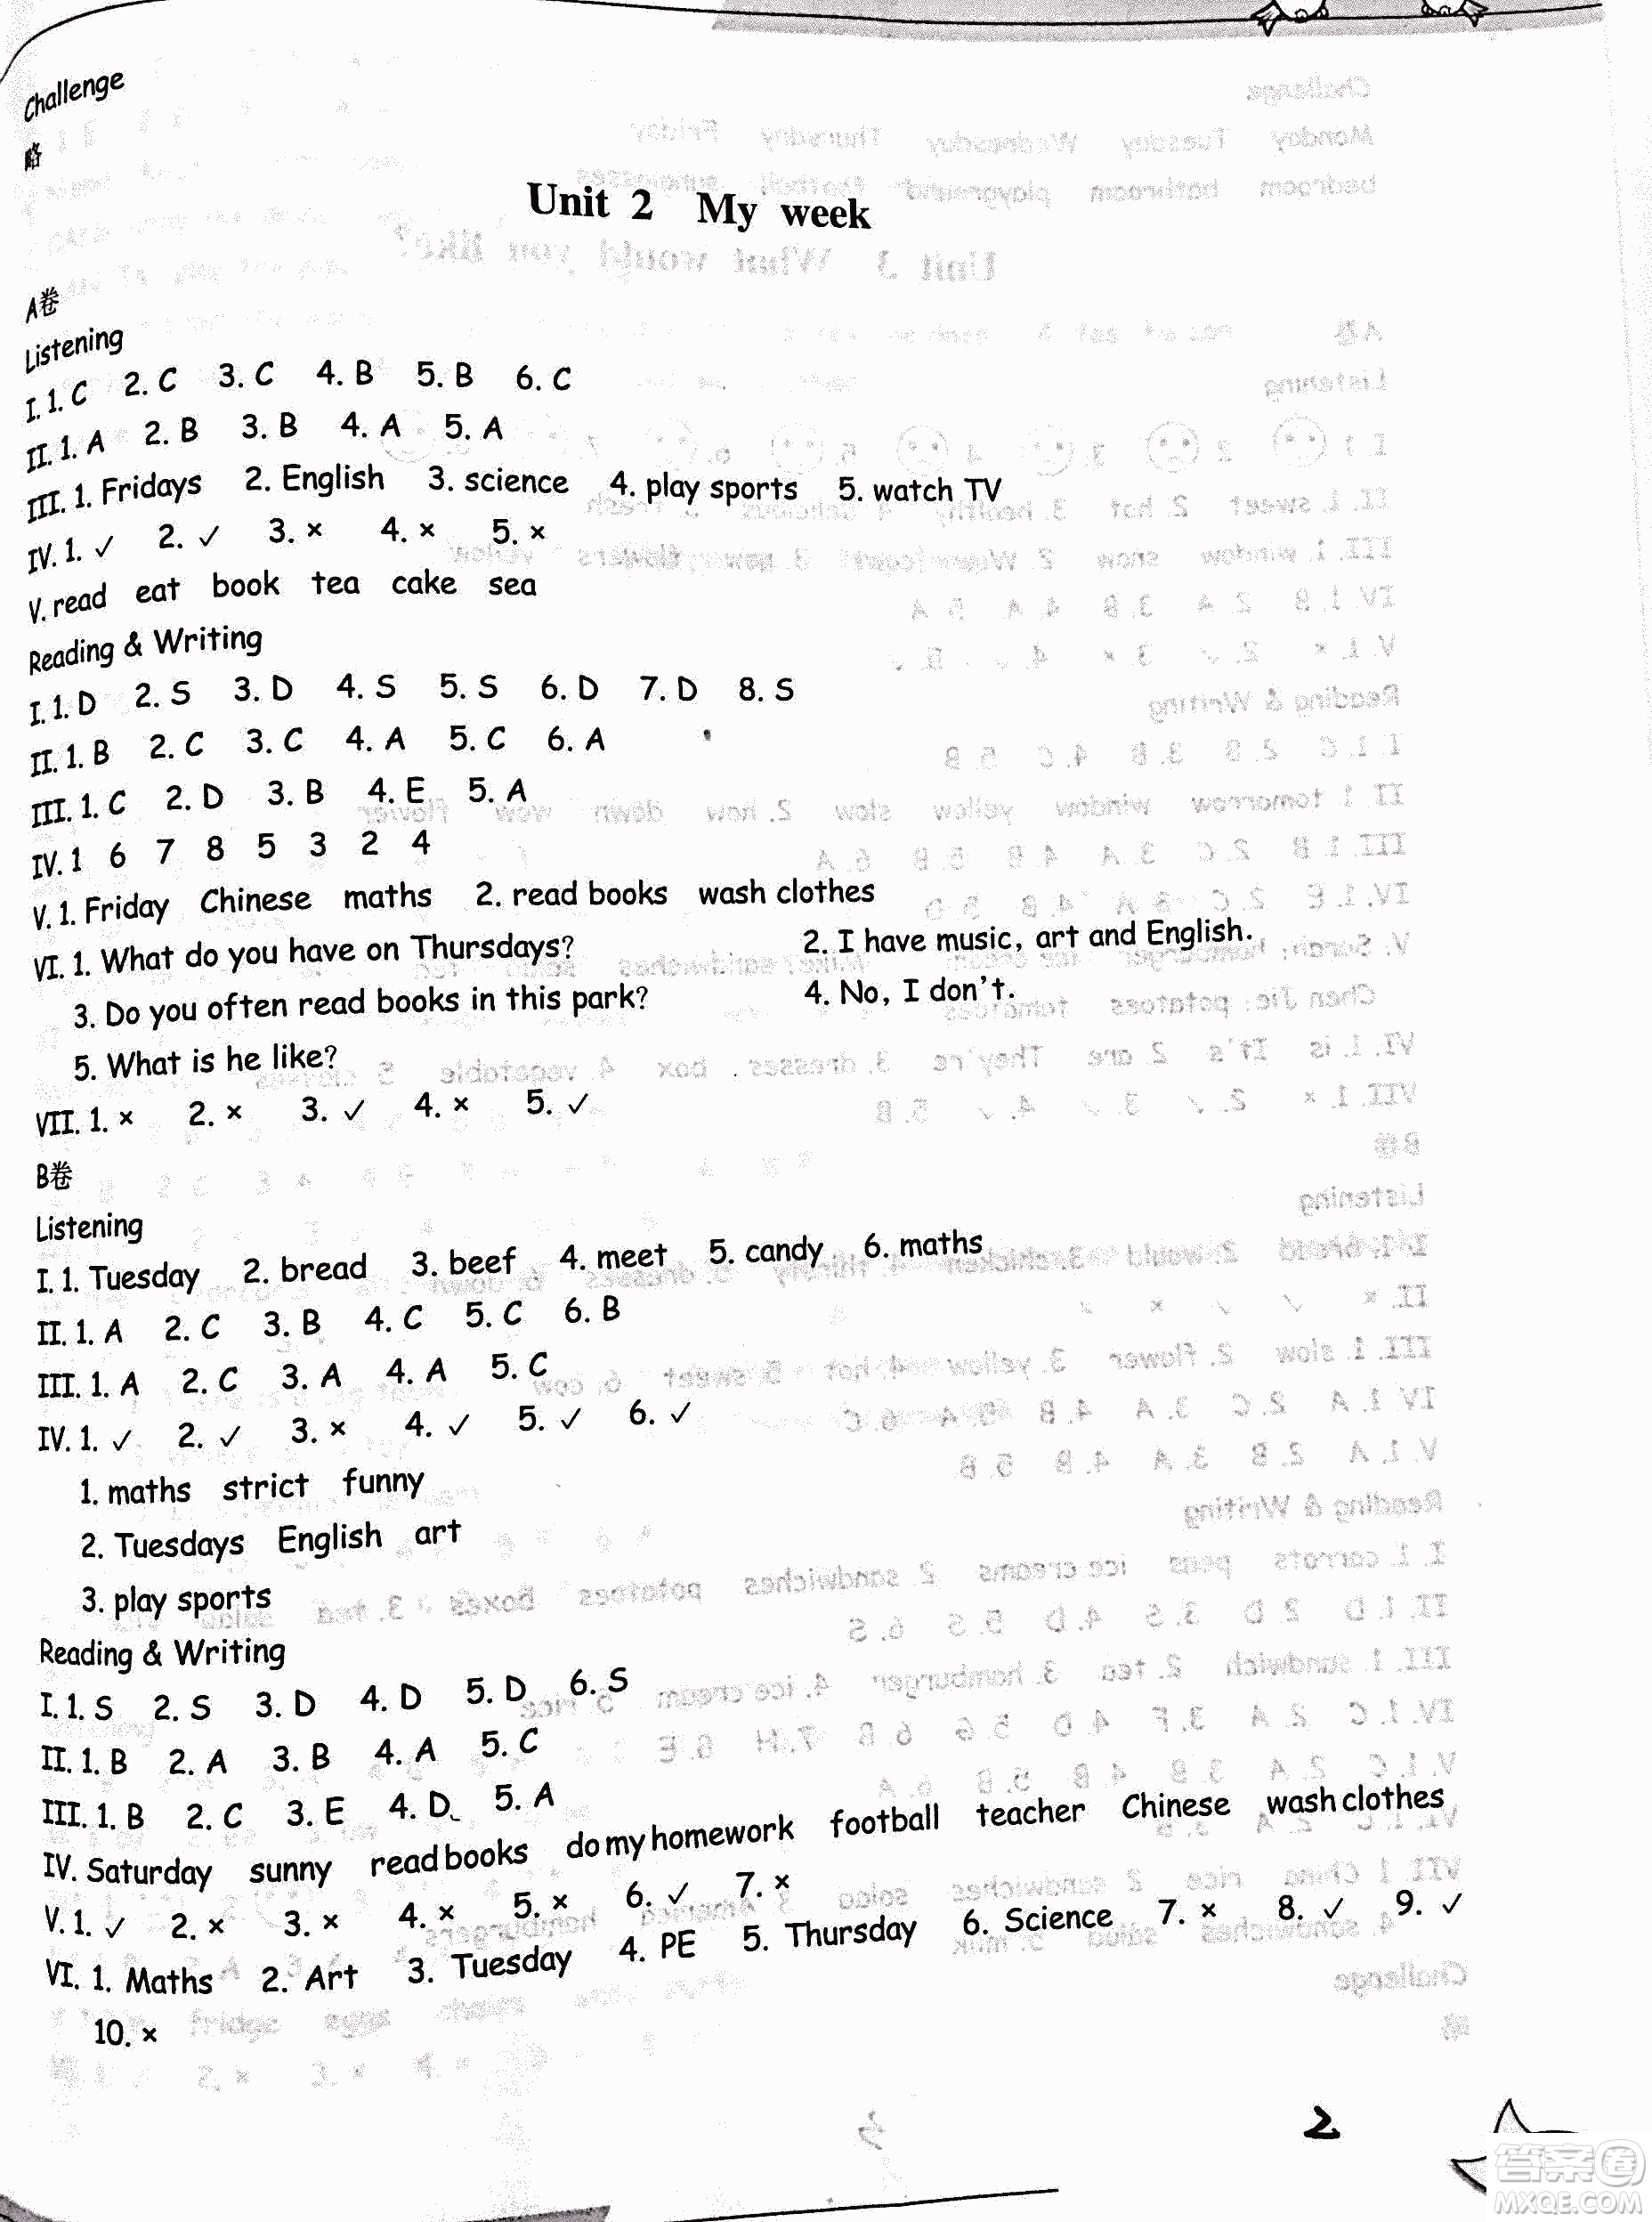 Challenge
略
Unit 2 My week
A卷
Listening
I. 1. C 2. C 3. C 4. B 5. B 6. C
II. 1. A 2. B 3. B 4. A 5. A
III. 1. Fridays 2. English 3. science 4. play sports 5. watch TV
IV. 1. ✓ 2. ✓ 3. × 4. × 5. ×
V. read eat book tea cake sea
Reading & Writing
I. 1. D 2. S 3. D 4. S 5. S 6. D 7. D 8. S
II. 1. B 2. C 3. C 4. A 5. C 6. A
III. 1. C 2. D 3. B 4. E 5. A
IV. 1 6 7 8 5 3 2 4
V. 1. Friday Chinese maths 2. read books wash clothes
VI. 1. What do you have on Thursdays? 2. I have music, art and English.
3. Do you often read books in this park? 4. No, I don't.
5. What is he like?
VII. 1. × 2. × 3. ✓ 4. × 5. ✓
B卷
Listening
I. 1. Tuesday 2. bread 3. beef 4. meet 5. candy 6. maths
II. 1. A 2. C 3. B 4. C 5. C 6. B
III. 1. A 2. C 3. A 4. A 5. C
IV. 1. ✓ 2. ✓ 3. × 4. ✓ 5. ✓ 6. ✓
1. maths strict funny
2. Tuesdays English art
3. play sports
Reading & Writing
I. 1. S 2. S 3. D 4. D 5. D 6. S
II. 1. B 2. A 3. B 4. A 5. C
III. 1. B 2. C 3. E 4. D 5. A
IV. Saturday sunny read books do my homework football teacher Chinese wash clothes
V. 1. ✓ 2. × 3. × 4. × 5. × 6. ✓ 7. ×
VI. 1. Maths 2. Art 3. Tuesday 4. PE 5. Thursday 6. Science 7. × 8. ✓ 9. ✓
10. ×
2
答案圈
MXQE.COM